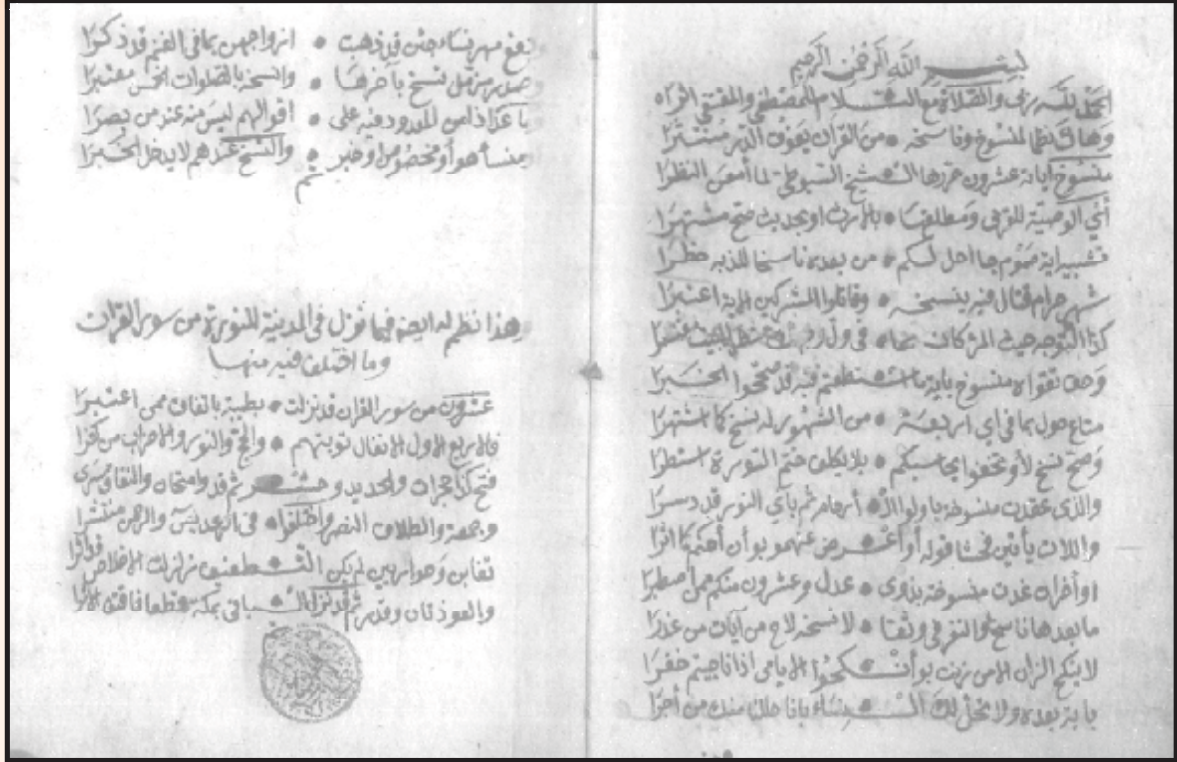 بسم الله الرحمن الرحيم
الحمد لله ربي والصلاة مع السلام للمصطفى والمقتفي اثراه
وهاك نظما لمنسوخ وناسخه • من القران يفوق الدر منتثرا
منسوخ اياته عشرون حررها الشيخ السيوطي لما أمعن النظرا
أتي الوصية للقربى ومطلقها • بالارث او بحديث صح مشتهرا
تشبيه اية صوم بها احل لكم • من بعده ناسخا للذ به حظرا
شهر حرام قتال فيه ينسخه • وقاتلوا المشركين الاية اعتبرا
كذا التوجه حيث المرء كان بها • في ول وجهك شطر البيت
وحق تقواه منسوخ باية ما استطعتم فيه قد صححوا الخبرا
متاع حول بما في اي اربعة • من الشهور له نسخ كما اشتهرا
وصح نسخ لأو تخفوا يحاسبكم • بلا يكلف ختم السورة استطرا
والذي عقدت منسوخة باولوا الأرحام ثم بأي النور قد دسرا
واللات يأتين فحشا قوله أو أعرض عنهمو بو أن احكم كما اثرا
او أخران غدت منسوخة بذوي • عدل وعشرون منكم ممن اصطبرا
ما بعدها ناسخ والنفر في وثقتا • لا نسخه لاح من آيات من عذرا
لا ينكح الزان الا من زنت بو أنكحوا الايامى اذا ناجيتم خفرا
باية بعده ولا تحل لك النساء بانا حللنا منك من أجرا
ودفع مهر نساء جئن قد ذهبت • ازواجهن بما في الغنم قد ذكرا
وصدر مزمل نسخ بآخرها • وانسخه بالصلوات الخمس معتبرا
يا عد اذا من المردود فيه على • اقوالهم ليس منه عند من بصرا
ومنسأ هو أو مخصوص او خبر • والنسخ عندهم لا يدخل الخبرا
تم
وهذا نظم له ايضا فيما نزل في المدينة المنورة من سور القران
وما اختلف فيه منها
عشرون من سور القران قد نزلت • بطيبة باتفاق ممن اعتبرا
فالاربع الاول الانفال توبتهم • والحج والنور والاحزاب من كفرا
فتح كذا حجرات والحديد وحشر ثم قد وامتحان والنفاق يرى
وجمعة والطلاق النصر واختلفوا • في الرعد يس والرحمن منتشرا
تغابن وحواريين لم يكن التطفيف زلزلت الاخلاص
والعوذتان وقدر ثم قد نزل الباقي بمكة قطعا